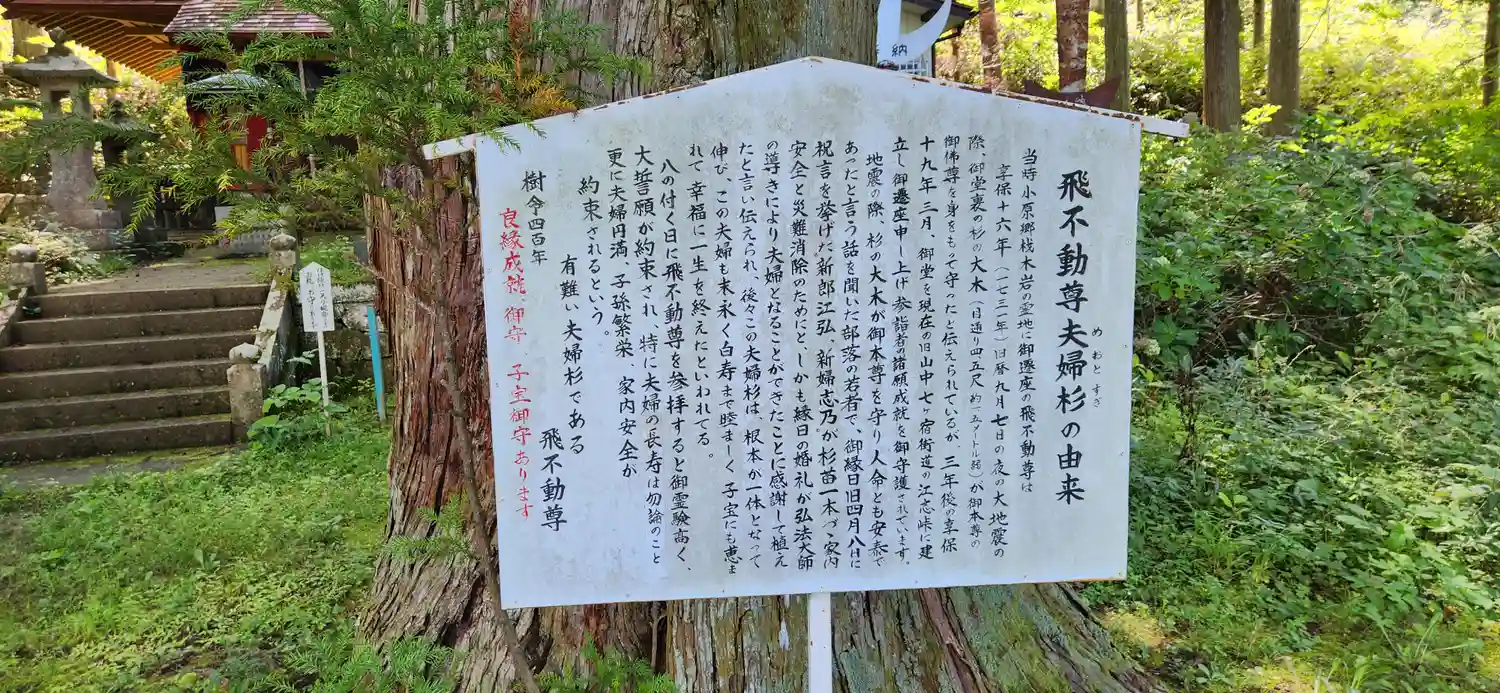 飛不動尊夫婦杉の由来
めおとすぎ
当時小原郷桟木岩の霊地に御遷座の飛不動尊は
享保十六年(一七三一年)旧暦九月七日の夜の大地震の
際、御堂裏の杉の大木(目通り四五尺)が御本尊の
御佛尊を身をもって守ったと伝えられているが、三年後の享保
十九年三月、御堂を現在の旧山中七ヶ宿街道の江志峠に建
立し御遷座申し上げ参詣者の諸願成就を御守護されています。
地震の際、杉の大木が御本尊を守り人命とも安泰で
あったと言う話を聞いた部落の若者で、御縁日旧四月八日に
祝言を挙げた新郎江弘、新婦志乃が杉苗一本づゝ家内
安全と災難消除のためにと、しかも縁日の婚礼が弘法大師
の導きにより夫婦となることができたことに感謝して植え
たと言い伝えられ、後々この夫婦杉は、根本が一体となって
伸び、この夫婦も末永く白寿まで睦まじく、子宝にも恵ま
れて幸福に一生を終えたといわれてる。
八の付く日に飛不動尊を参拝すると御霊験高く、
大誓願が約束され、特に夫婦の長寿は勿論のこと
更に夫婦円満、子孫繁栄、家内安全が
約束されるという。
有難い夫婦杉である
樹令四百年
飛不動尊
良縁成就、御守、子宝御守あります
納